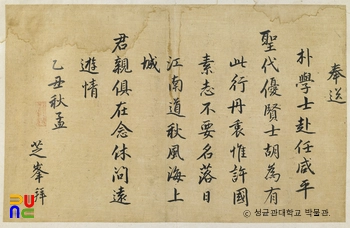 奉送
朴學士赴任咸平
聖代優賢士胡為有
此行丹衷惟許國
素志不要名落日
江南道秋風海上
城
君親俱在念休問遠
遊情
乙丑秋孟
芝峯拜
ⓒ 성균관대학교 박물관.